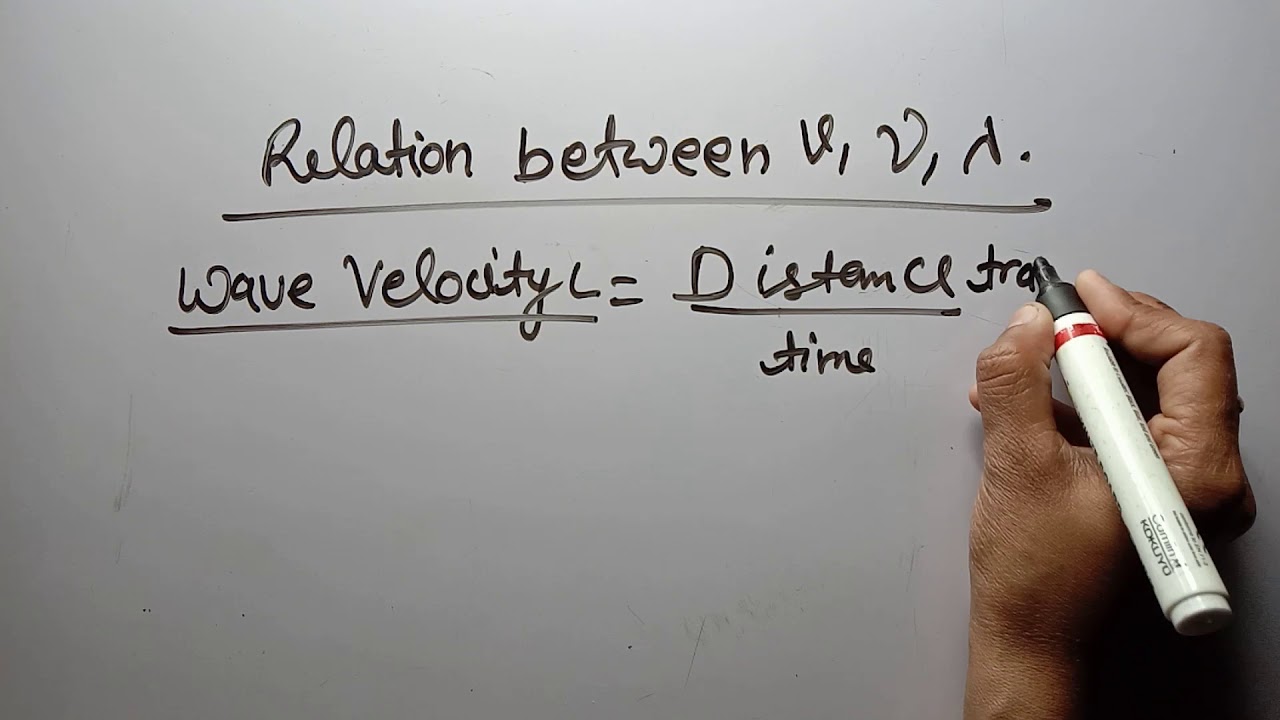 Relation between v, ν, λ.
Wave Velocity L = Distance tra
time
Camlin
KOKUYO